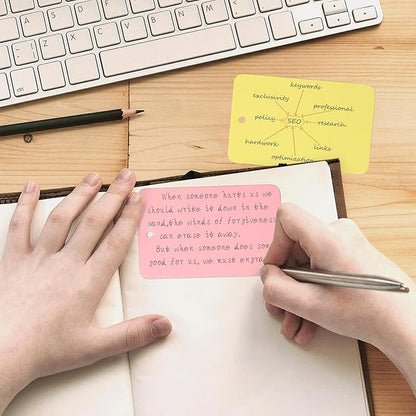 keywords
exclusivity
professional
policy
SEO
research
hardwork
links
optimization
When someone hurts us we
should write it down in the
sand,the winds of forgiveness
can erase it away.
But when someone does som
good for us, we must engra